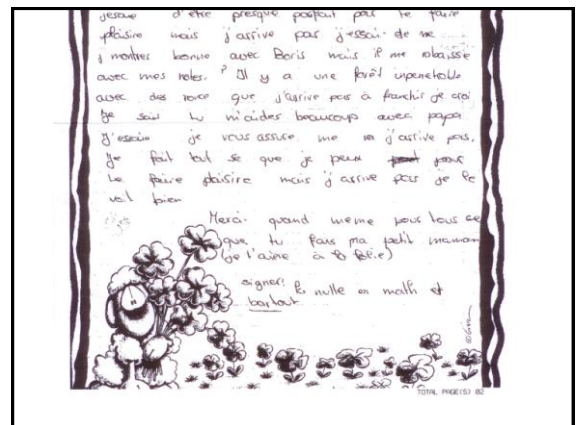 jesaie d'etre presque partout pour te faire
plaisire mais j'arrive pas j'essair de me
montres bonne avec Boris mais il me rabaisse
avec mes notes. Il y a une forêt inpenetrable
avec des ronce que j'arrive pas à franchir je croi
Je sait tu m'aides beaucoup avec papa
J'essaie je vous assure me j'arrive pas.
Je fait tout se que je peux pour
te faire plaisire mais j'arrive pas je le
voit bien
Merci quand meme pour tous ce
que tu fais ma petit maman
(je l'aime à la folie)
signer: la nulle en math et
partout
TOTAL PAGE(S) 02